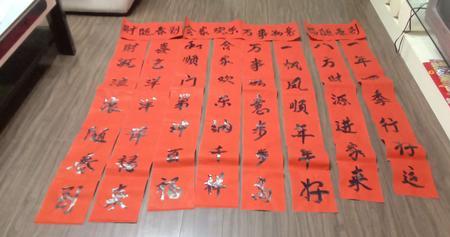 财随春到
合家欢乐
万事如意
随春到
财气滚滚随春到
喜气洋洋福来
和顺门第百福
合家欢乐纳千祥
万事如意步步高
一帆风顺年年好
八方财源进家来
一年四季行好运